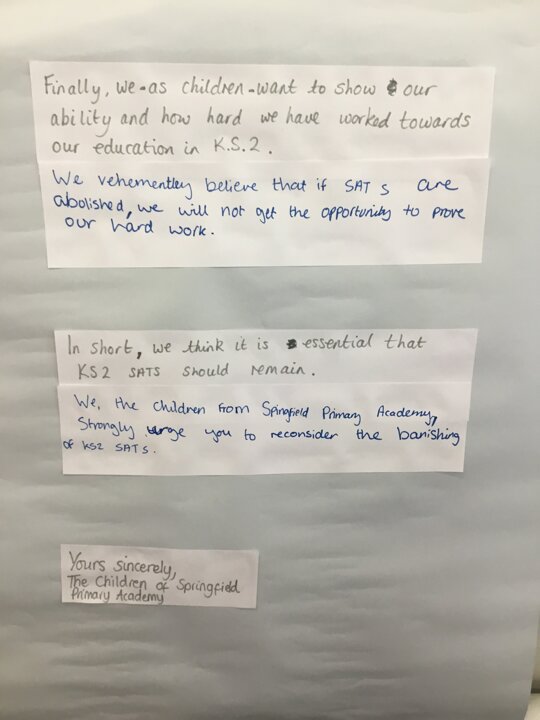 Finally, we-as children-want to show our
ability and how hard we have worked towards
our education in K.S.2.
We vehemently believe that if SATs are
abolished, we will not get the opportunity to prove
our hard work.
In short, we think it is essential that
KS2 SATS should remain.
We, the children from Springfield Primary Academy,
Strongly urge you to reconsider the banishing
of KS2 SATS.
Yours sincerely,
The Children of Springfield
Primary Academy